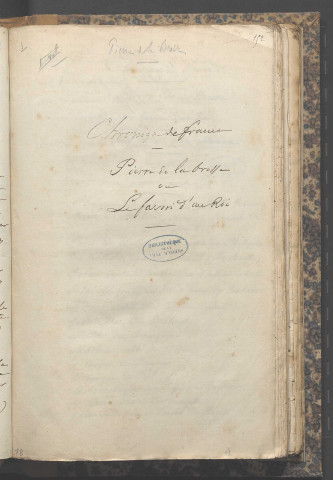 152
Pierre de la Brosse
Chronique de france
Pierre de la Brosse
ou
Le favori d'un Roi
BIBLIOTHEQUE